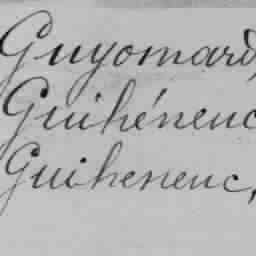 Guyomard,
Guihéneuc
Guiheneuc,